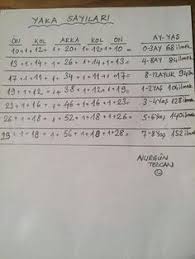 YAKA SAYILARI
ÖN KOL ARKA KOL ÖN AY-YAŞ
10+1+12+1+20+1+12+1+10 = 0-3AY 68 ilmek
13+1+14+1+26+1+14+1+13 = 4-8AY 84 ilmek
17+1+11+1+34+1+11+1+17 = 8-12AYLIK 94
19+1+12+1+38+1+12+1+19 = 1-2YAŞ ilmek
23+1+16+1+46+1+16+1+23 = 3-4YAŞ 128
26+1+18+1+52+1+18+1+26 = 5-6YAŞ ilmek
28+1+18+1+56+1+18+1+28 = 7-8YAŞ 152 ilmek
NURGÜN
TEZCAN